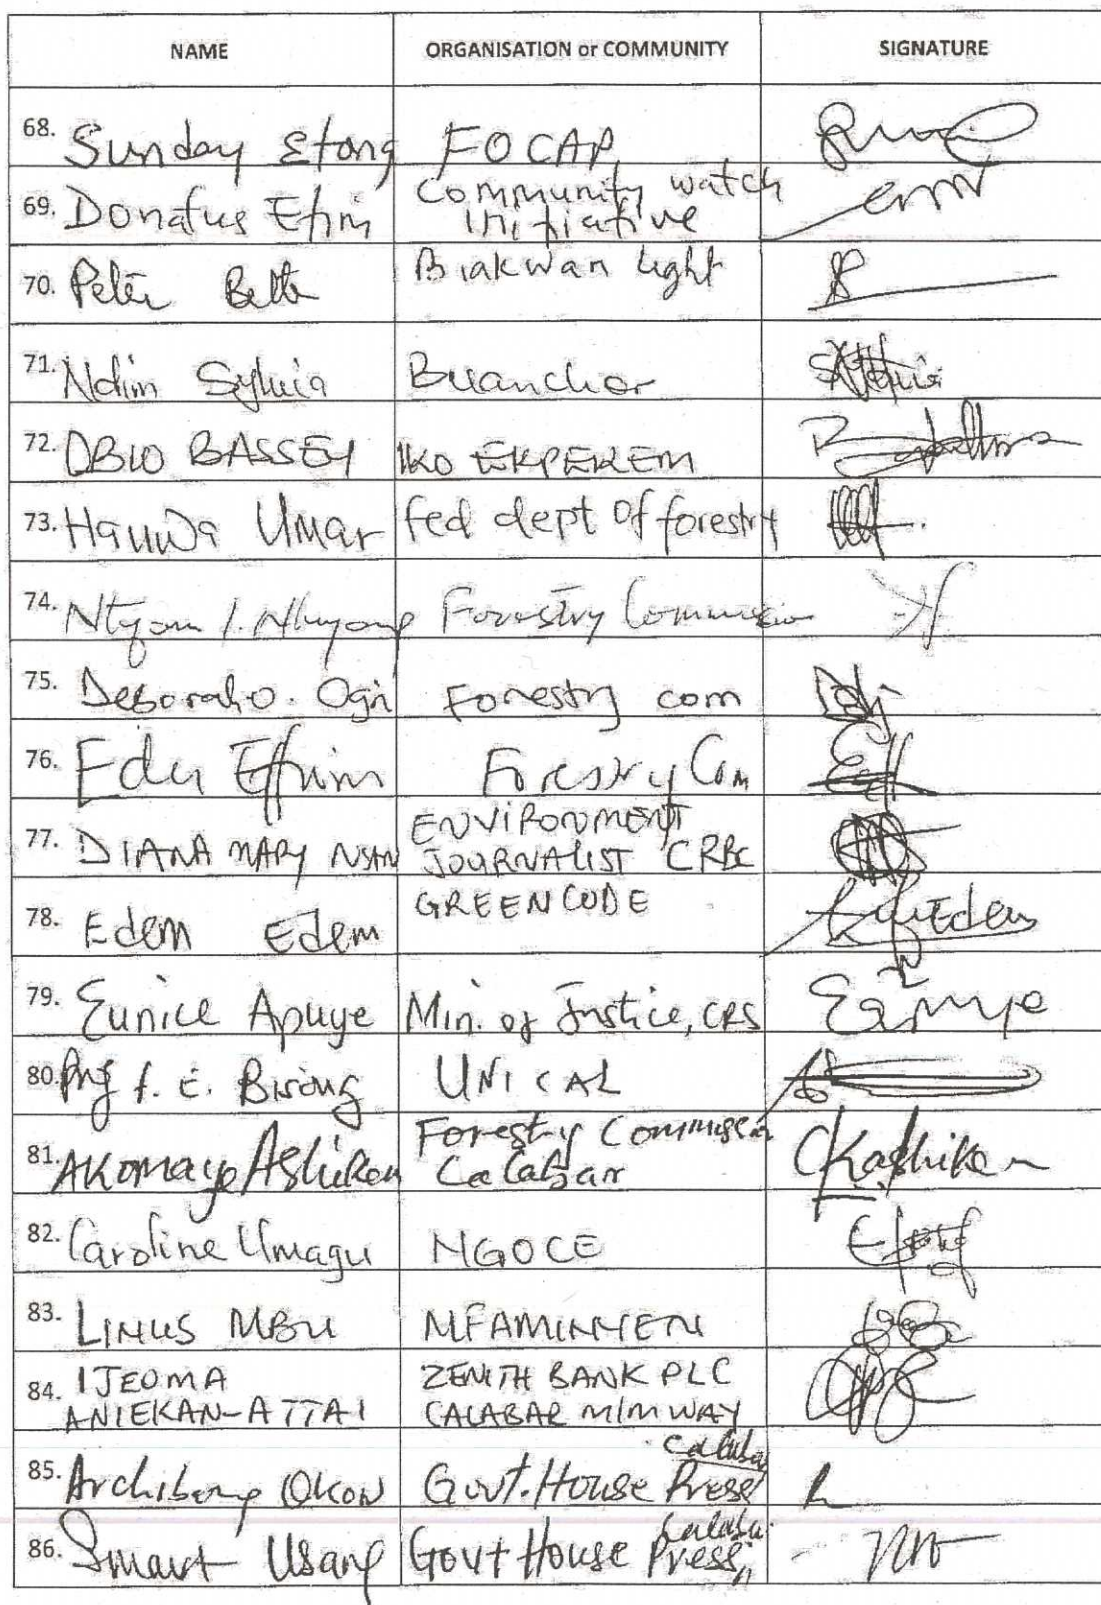 NAME ORGANISATION or COMMUNITY SIGNATURE
68. Sunday Etang FOCAP
69. Donatus Efim Community watch
Initiative
70. Peter Bette Biakwan Light
71. Ndim Sylvia Buanchor
72. OBIO BASSEY IKO EKPEREM
73. Hauwa Umar fed dept of forestry
74. Forestry Commission
75. Deborah O. Ogri Forestry com
76. Edu Effiom Forestry Com
77. DIANA MARY NSAN ENVIRONMENT
JOURNALIST CRBC
78. Edem Edem GREENCODE Edem
79. Eunice Apuye Min. of Justice, CRS
80. Prof F. E. Bisong UNICAL
81. AKomaye Ashikem Forestry Commission
Calabar
82. Caroline Umagu NGOCE
83. LINUS MBU MFAMINYEN
84. IJEOMA ZENITH BANK PLC
ANIEKAN-ATTAI CALABAR M/M WAY
85. Archibong Okon Govt. House Press Calabar
86. Smart Usang Govt House Press, Calabar